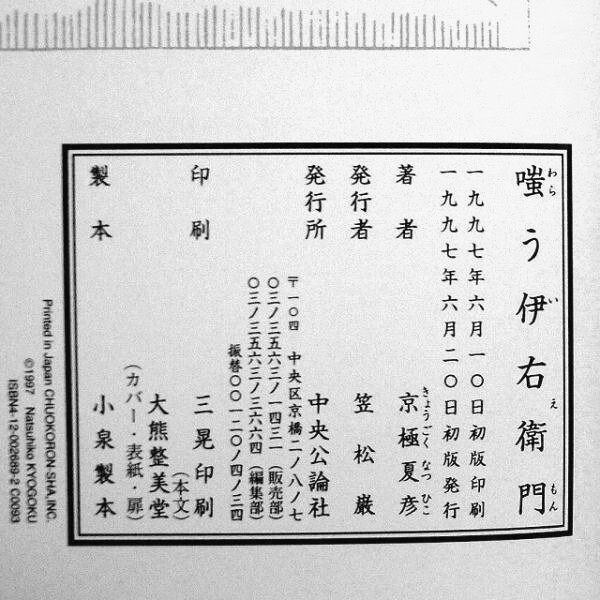 嗤う伊右衛門
わら
い
え
もん
一九九七年六月一〇日初版印刷
一九九七年六月二〇日初版発行
著者 京極夏彦
きょうごく なつ ひこ
発行者 笠松巌
発行所 中央公論社
〒一〇四 中央区京橋二ノ八ノ七
〇三ノ三五六三ノ一四三一(販売部)
〇三ノ三五六三ノ三六六四(編集部)
振替〇〇一二〇ノ四ノ三四
印刷 三晃印刷
(本文)
大熊整美堂
(カバー・表紙・扉)
製本 小泉製本
Printed in Japan CHUOKORON-SHA,INC.
©1997 Natsuhiko KYOGOKU
ISBN4-12-002689-2 C0093